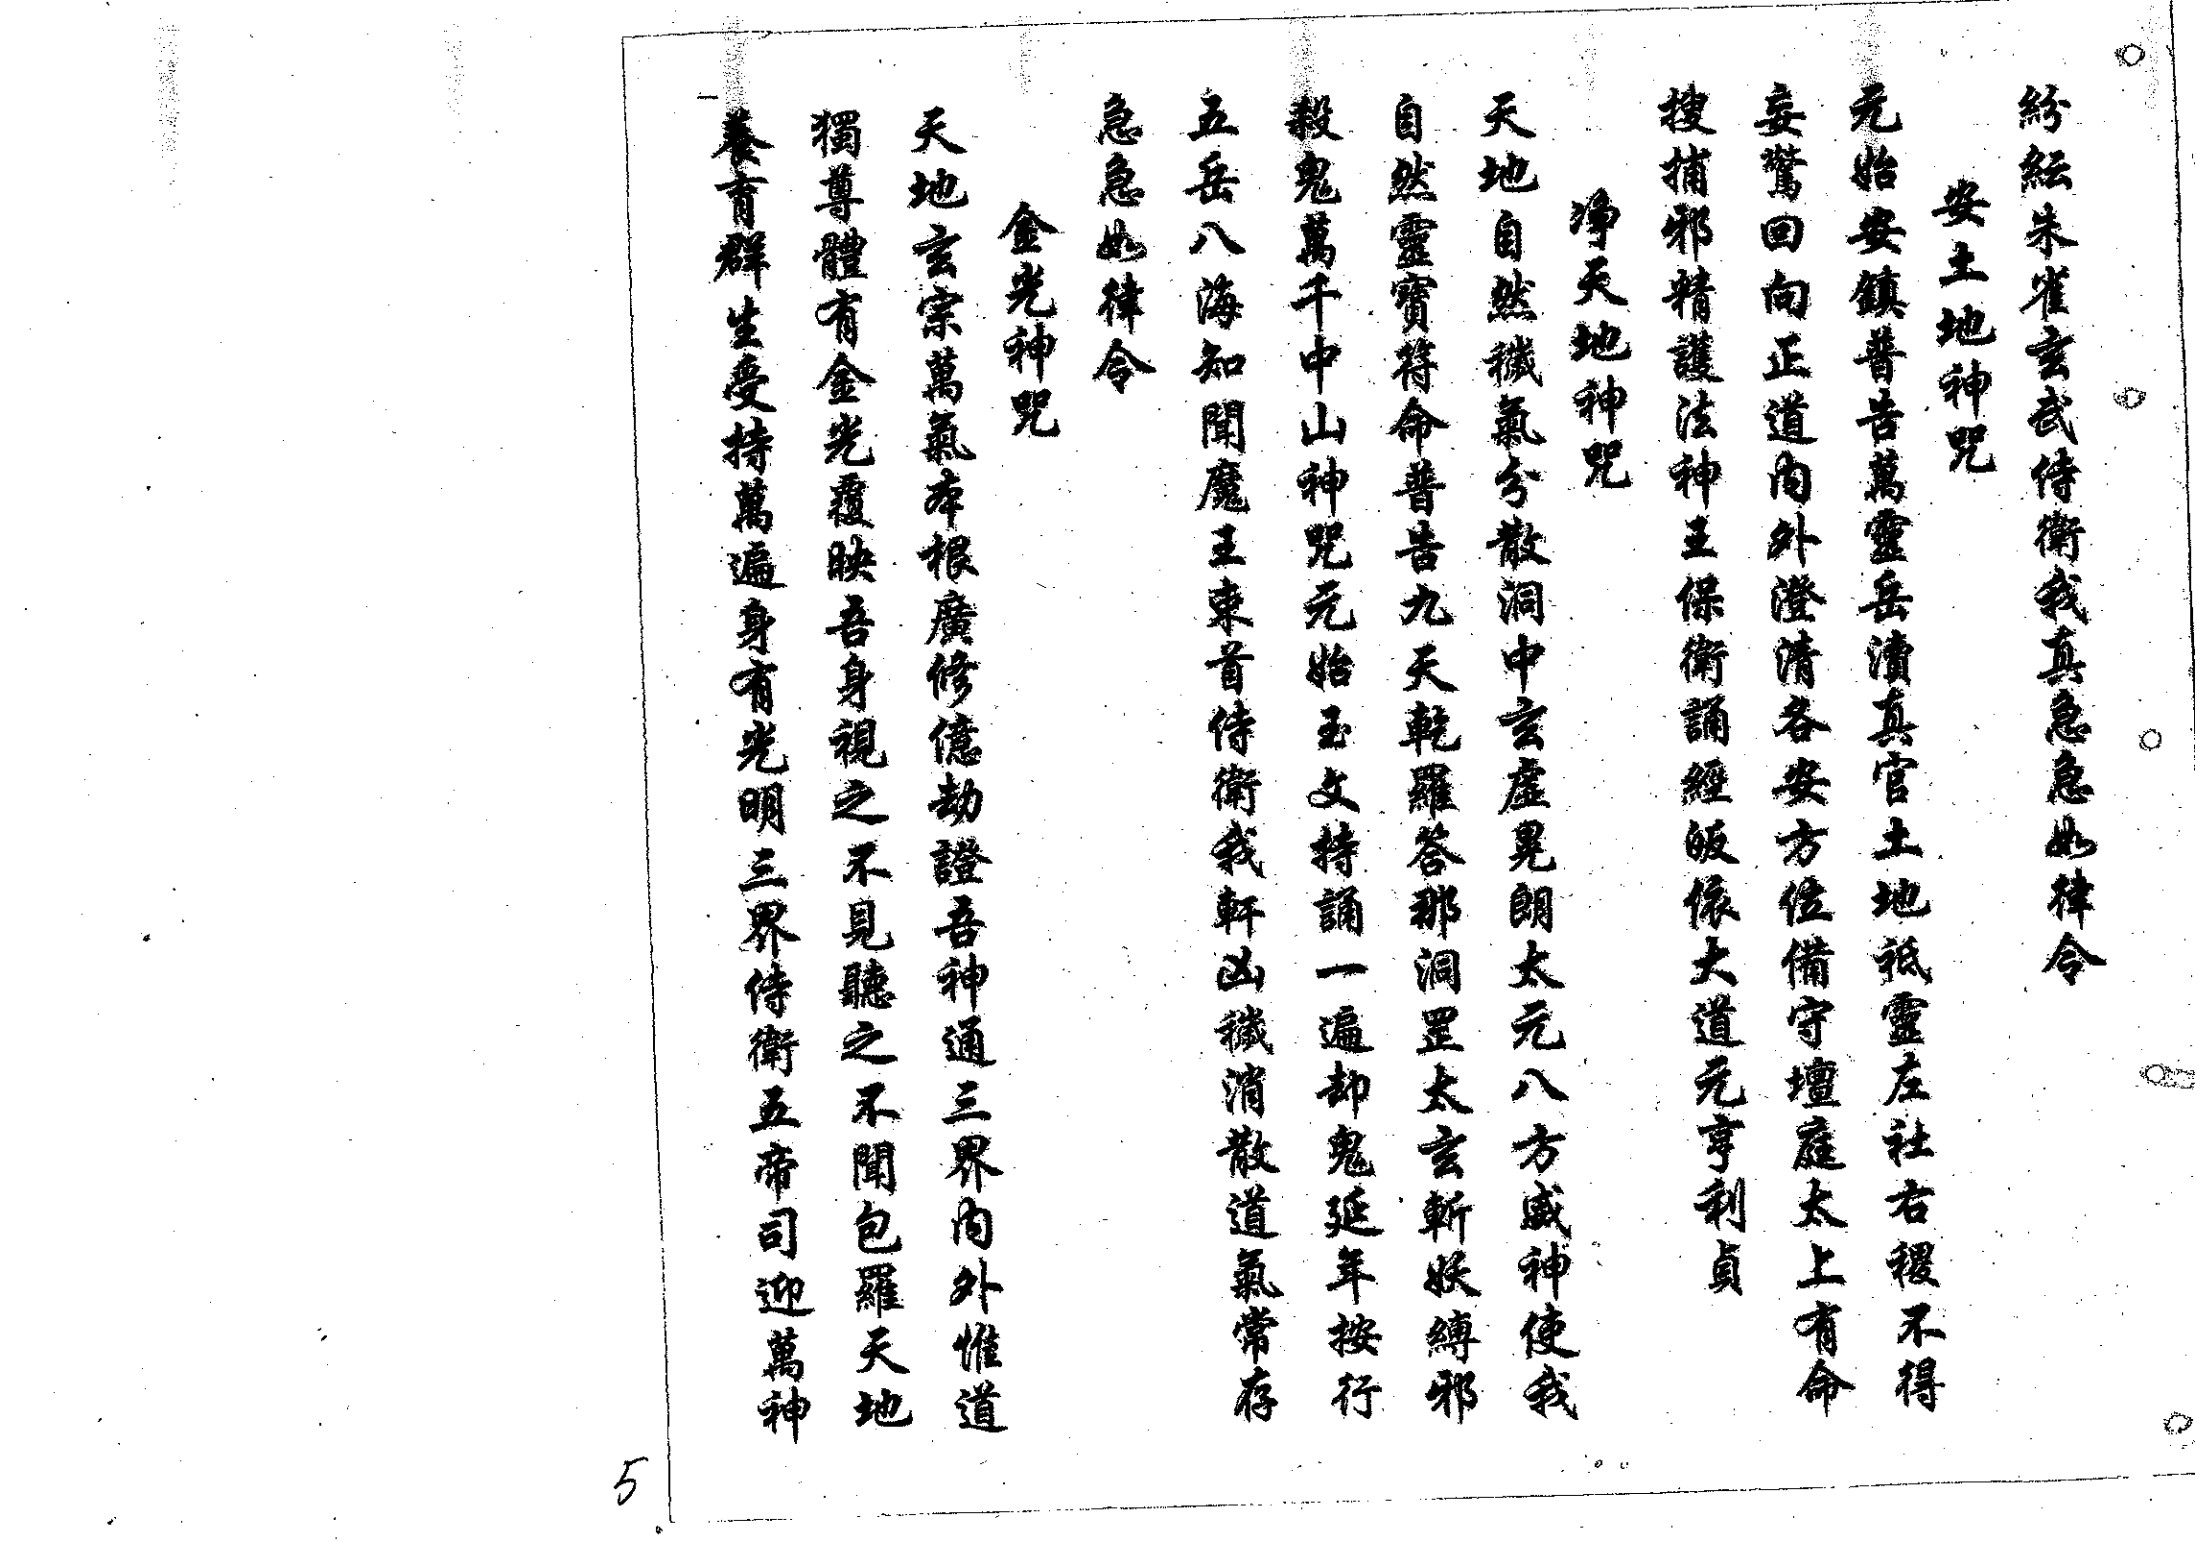 紛紜朱雀玄武侍衛我真急急如律令
安土地神咒
元始安鎮普告萬靈岳瀆真官土地祗靈左社右稷不得
妄驚回向正道內外澄清各安方位備守壇庭太上有命
搜捕邪精護法神王保衛誦經皈依大道元亨利貞
淨天地神咒
天地自然穢氣分散洞中玄虛晃朗太元八方威神使我
自然靈寶符命普告九天乾羅答那洞罡太玄斬妖縛邪
殺鬼萬千中山神咒元始玉文持誦一遍却鬼延年按行
五岳八海知聞魔王束首侍衛我軒凶穢消散道氣常存
急急如律令
金光神咒
天地玄宗萬氣本根廣修億劫證吾神通三界內外惟道
獨尊體有金光覆映吾身視之不見聽之不聞包羅天地
養育群生受持萬遍身有光明三界侍衛五帝司迎萬神
5